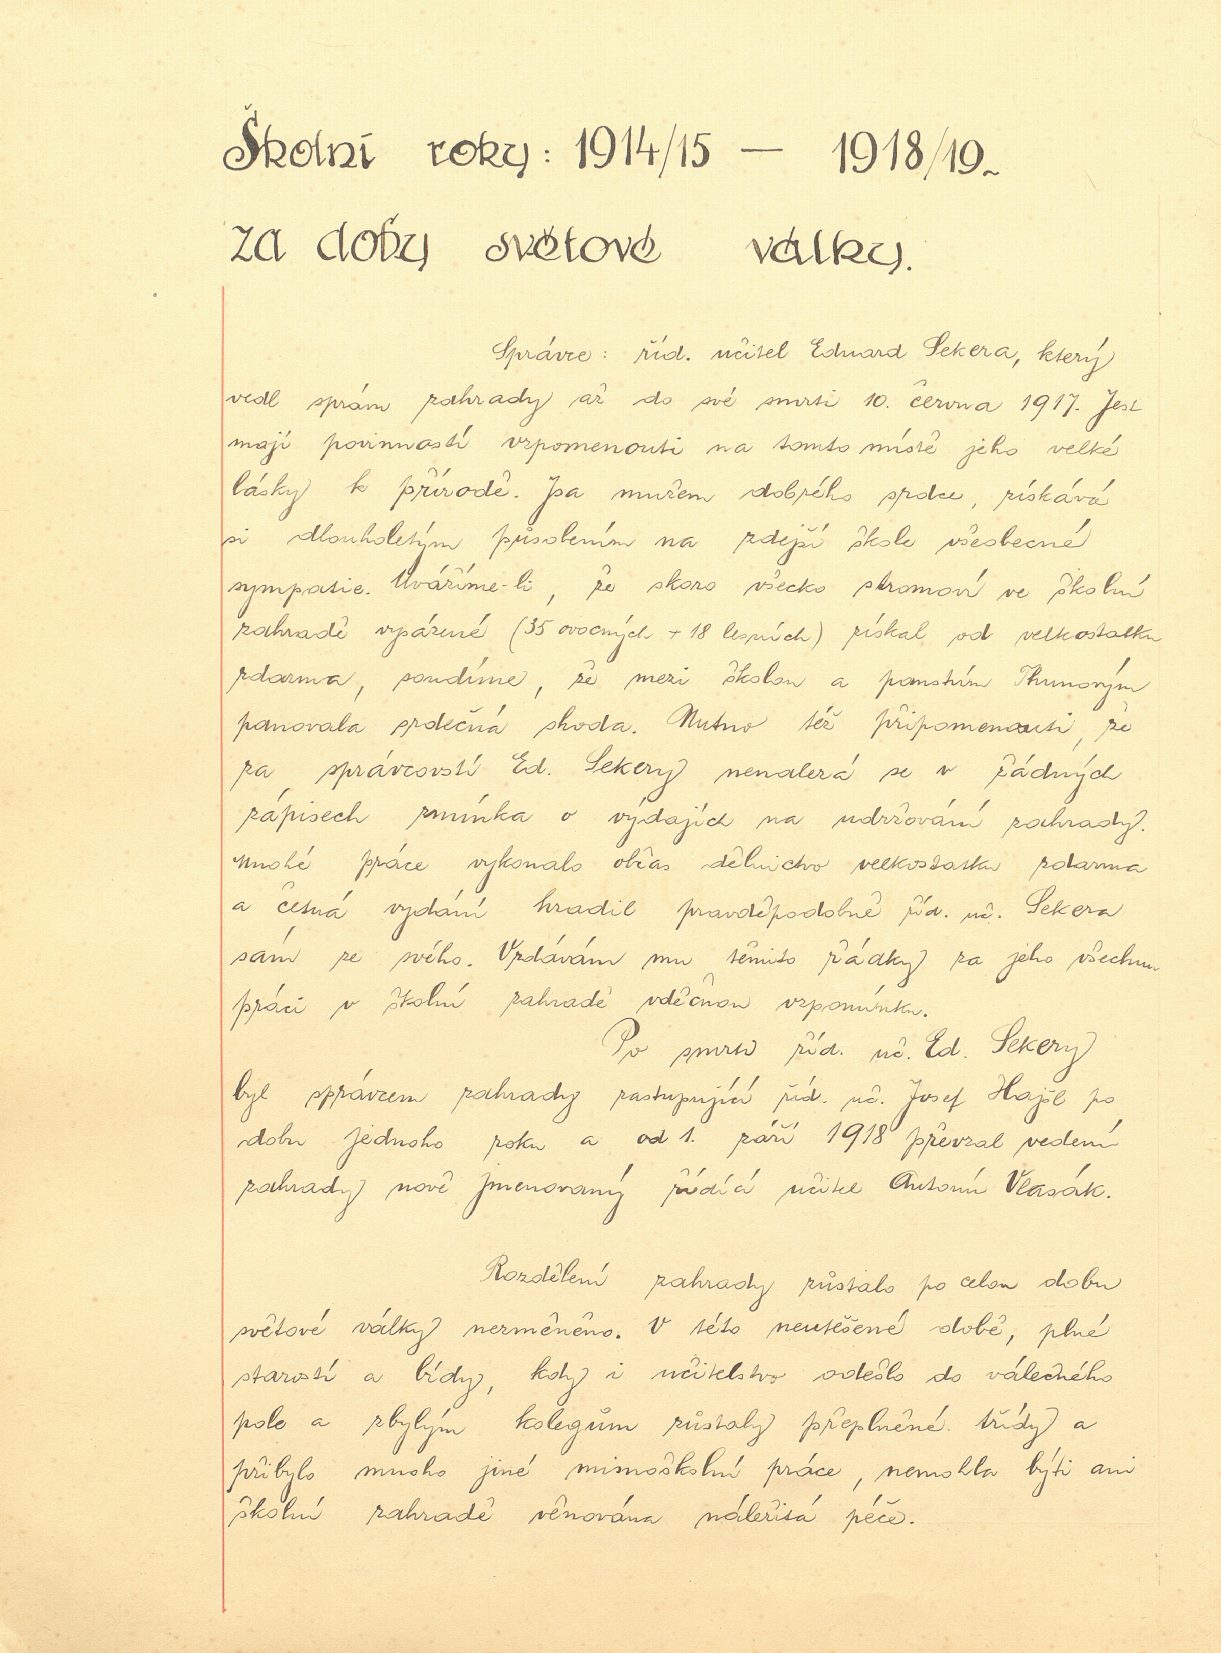 Školní roky: 1914/15 — 1918/19.
za doby světové války.
Správce: říd. učitel Eduard Sekera, který
vedl správu zahrady až do své smrti 10. června 1917. Jest
mojí povinností vzpomenouti na tomto místě jeho velké
lásky k přírodě. Jsa mužem dobrého srdce, získává
si dlouholetým působením na zdejší škole všeobecné
sympatie. Uvážíme-li, že skoro všecko stromoví ve školní
zahradě vysázené (35 ovocných + 18 lesních) získal od velkostatku
zdarma, soudíme, že mezi školou a panstvím Thunovým
panovala srdečná shoda. Nutno též připomenouti, že
za správcovství Ed. Sekery nenalezá se v řádných
zápisech zmínka o výdajích na udržování zahrady.
Mnohé práce vykonalo občas dělnictvo velkostatku zdarma
a četná vydání hradil pravděpodobně říd. uč. Sekera
sám ze svého. Vzdávám mu těmito řádky za jeho všechnu
práci v školní zahradě vděčnou vzpomínku.
Po smrti říd. uč. Ed. Sekery
byl správcem zahrady zastupující říd. uč. Josef Hajšl po
dobu jednoho roku a od 1. září 1918 převzal vedení
zahrady nově jmenovaný řídící učitel Antonín Vlasák.
Rozdělení zahrady zůstalo po celou dobu
světové války nezměněno. V této neutěšené době, plné
starostí a bídy, kdy i učitelstvo odešlo do válečného
pole a zbylým kolegům zůstaly přeplněné třídy a
přibylo mnoho jiné mimoškolní práce, nemohla býti ani
školní zahradě věnována náležitá péče.